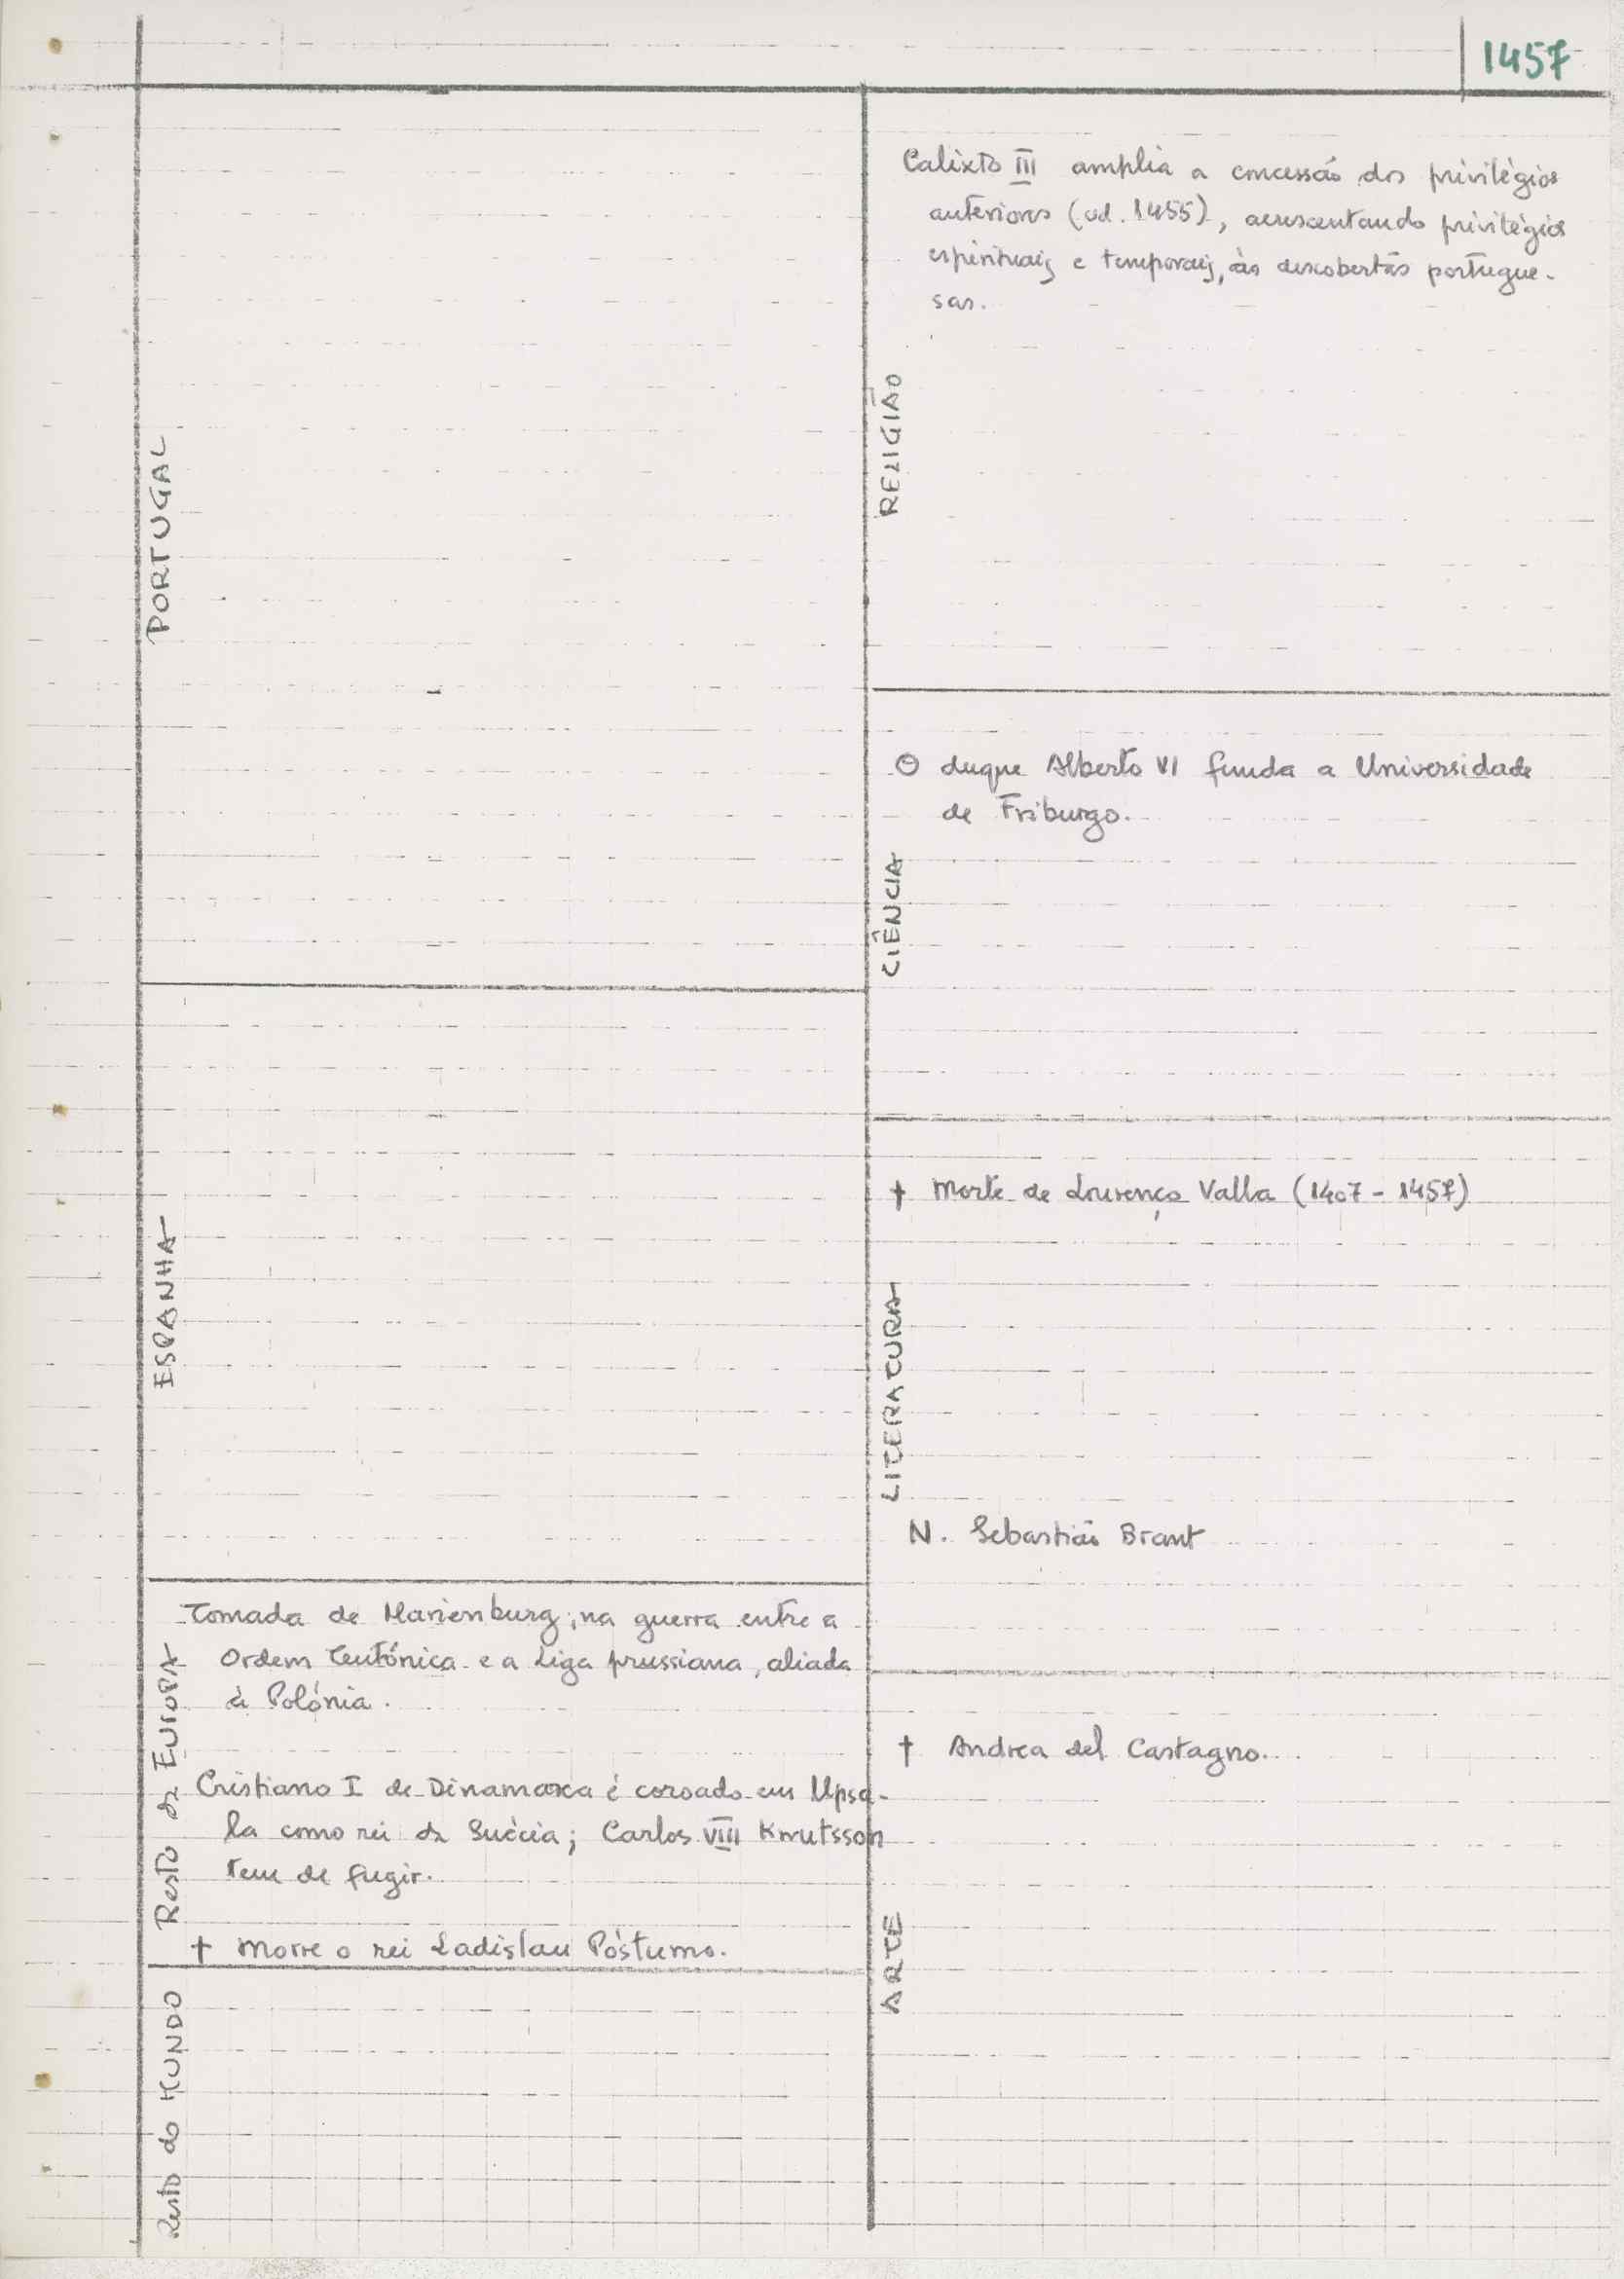 1457
PORTUGAL
ESPANHA
Resto da EUROPA
Tomada de Marienburg, na guerra entre a
Ordem Teutónica e a Liga prussiana, aliada
à Polónia.
Cristiano I de Dinamarca é coroado em Upsa-
la como rei da Suécia; Carlos VIII Knutsson
tem de fugir.
† Morre o rei Ladislau Póstumo.
Resto do MUNDO
RELIGIÃO
Calixto III amplia a concessão dos privilégios
anteriores (vd. 1455), acrescentando privilégios
espirituais e temporais, às descobertas portugue-
sas.
CIÊNCIA
O duque Alberto VI funda a Universidade
de Friburgo.
LITERATURA
† Morte de Lourenço Valla (1407 - 1457)
N. Sebastião Brant
ARTE
† Andrea del Castagno.